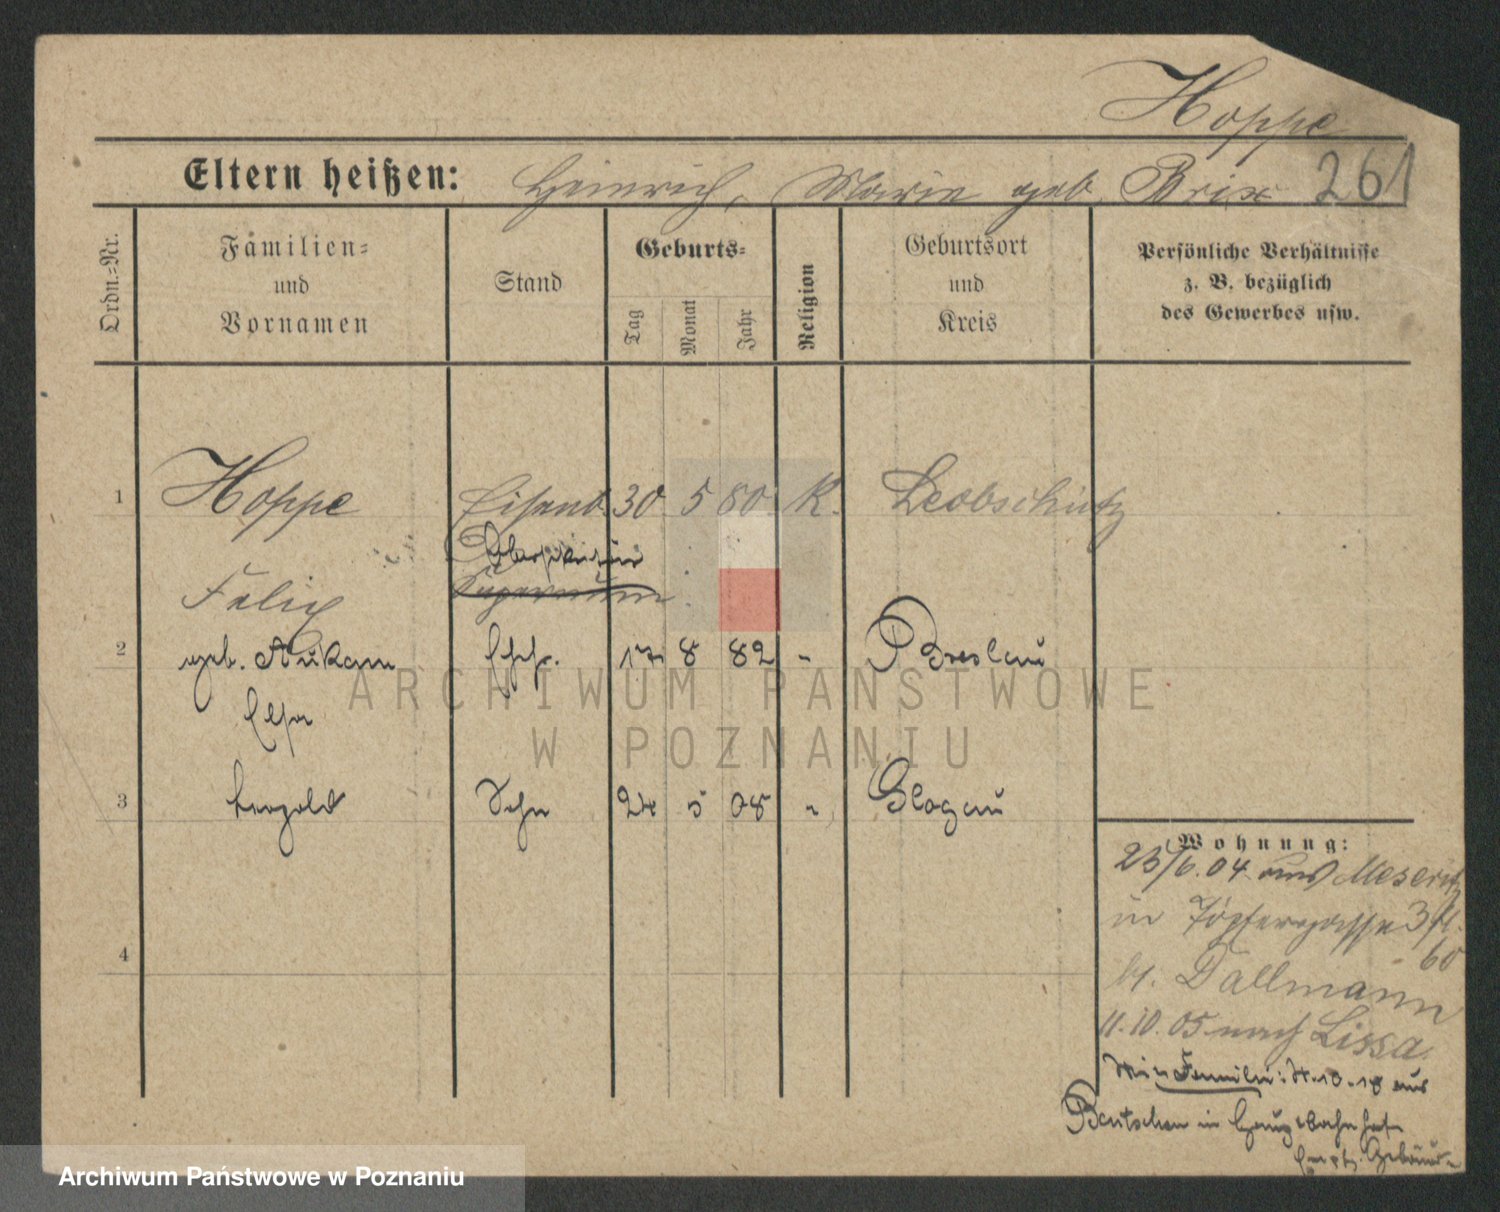 Hoppe
Eltern heißen: Heinrich, Marie geb. Brix 261
Ordn.=Nr.
Familien=
und
Vornamen
Stand
Geburts=
Tag
Monat
Jahr
Religion
Geburtsort
und
Kreis
Persönliche Verhältnisse
z. B. bezüglich
des Gewerbes usw.
1 Hoppe Eisenb. 30 5 80 K. Leobschütz
Supernum
Felix
2 geb. Aukam Ehefr. 17 8 82 " Breslau
Elsa
3 Leopold Sohn 24 5 08 " Glogau
4
Wohnung:
23/6.04 aus Meseritz
in Töpfergasse 3/II.
60
b. Dallmann
11.10.05 nach Lissa.
Familie: 10.18 aus
Bentschen in
Gebäude
ARCHIWUM PAŃSTWOWE
W POZNANIU
Archiwum Państwowe w Poznaniu